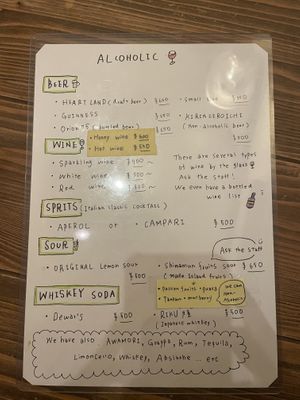 ALCOHOLIC
BEER
・HEARTLAND (draft beer) ・Small
・GUINNESS ・KIRIN ZEROICHI
(Non-alcoholic beer)
・Orion 75 (bottled beer)
WINE
・Honey wine
・Hot wine
・Sparkling wine
・White wine
・Red wine
There are several types
of wine by the glass
Ask the staff!
We even have a bottled
wine list
SPRITS (Italian classic COCKTAIL)
・APEROL or ・CAMPARI $800
SOUR
Ask the staff
・ORIGINAL Lemon sour
・Shimaman fruits sour $650
(Made Island fruits)
・Passion fruits ・guava
・Tankan ・mulberry
WHISKEY SODA
・Dewar's
・RIKU 陸
(Japanese whiskey)
We have also AWAMORI, Grappa, Rum, Tequila,
Limoncello, Whiskey, Absinthe ... etc